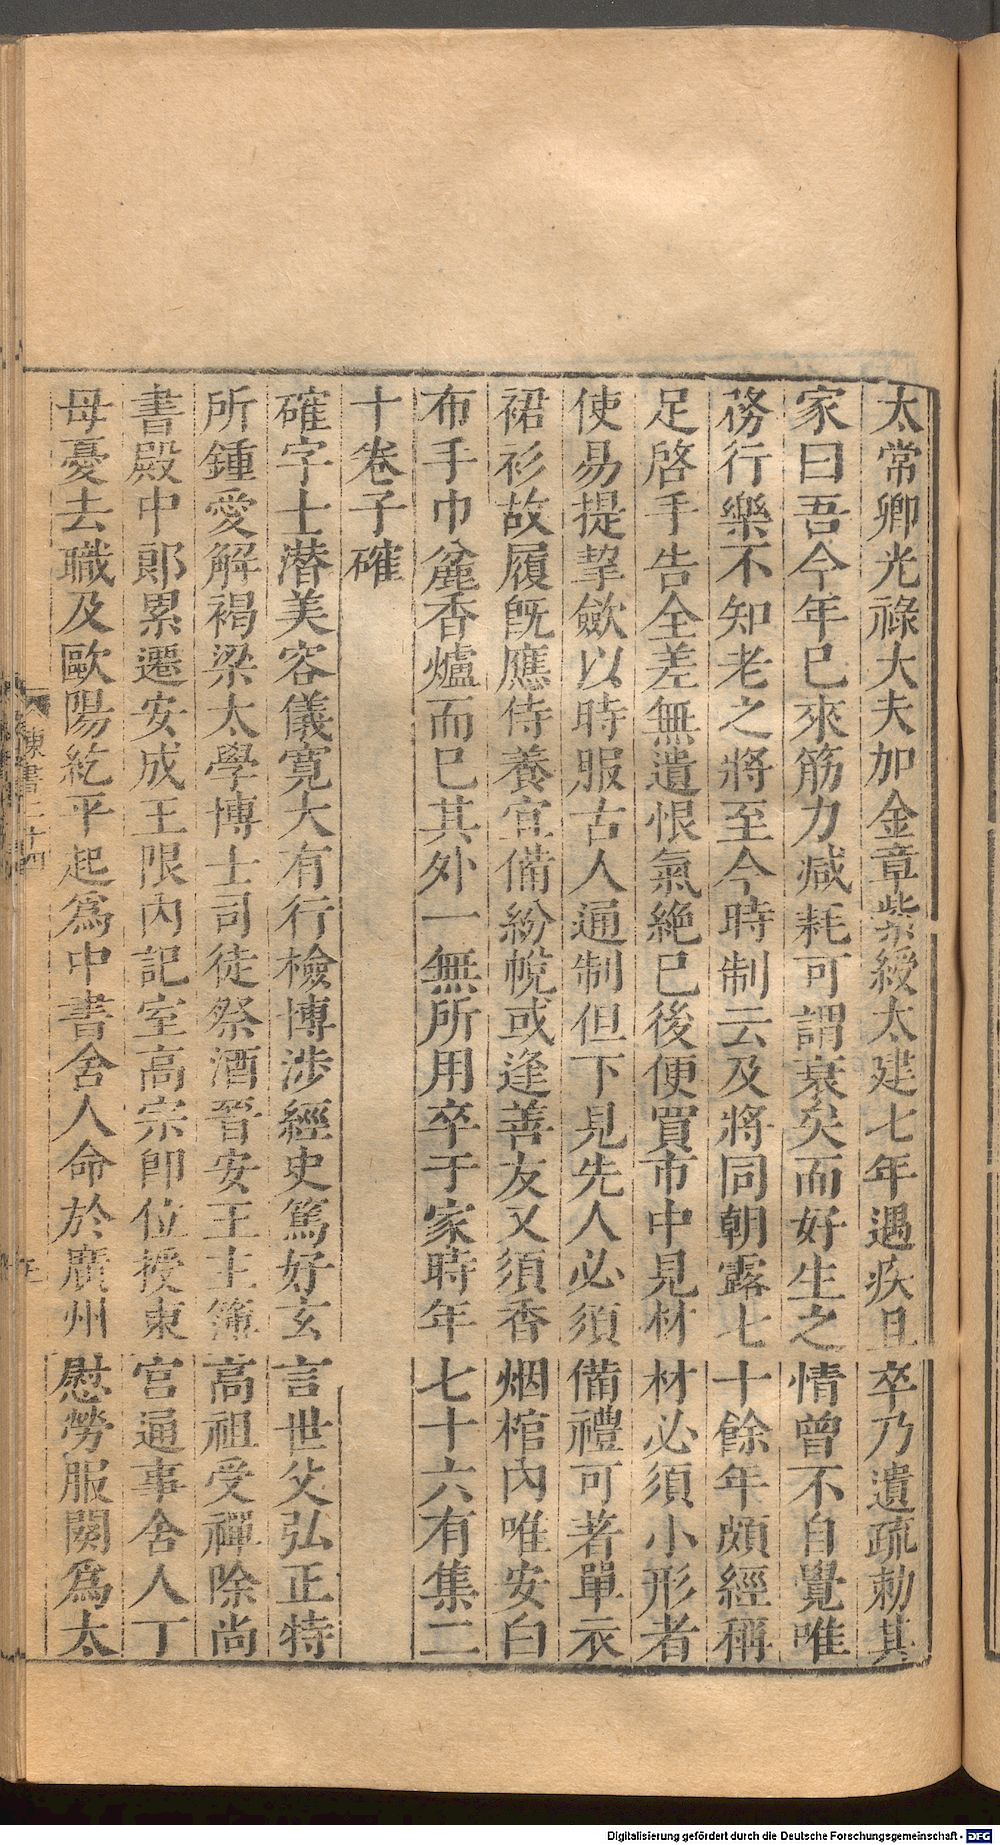 太常卿光祿大夫加金章紫綬太建七年遇疾且卒乃遺疏勅其
家曰吾今年已來筋力減耗可謂衰矣而好生之情曾不自覺唯
務行樂不知老之將至今時制云及將同朝露七十餘年頗經稱
足啓手告全差無遺恨氣絕已後便買市中見材材必須小形者
使易提挈斂以時服古人通制但下見先人必須備禮可著單衣
裙衫故履旣應侍養宜備紛帨或逢善友又須香烟棺內唯安白
布手巾麄香爐而已其外一無所用卒于家時年七十六有集二
十卷子確
確字士潜美容儀寛大有行檢博涉經史篤好玄言世父弘正特
所鍾愛解褐梁太學博士司徒祭酒晉安王主簿高祖受禪除尚
書殿中郎累遷安成王限內記室高宗卽位授東宮通事舍人丁
母憂去職及歐陽紇平起爲中書舍人命於廣州慰勞服闋爲太
陳書二十四
Digitalisierung gefördert durch die Deutsche Forschungsgemeinschaft - DFG